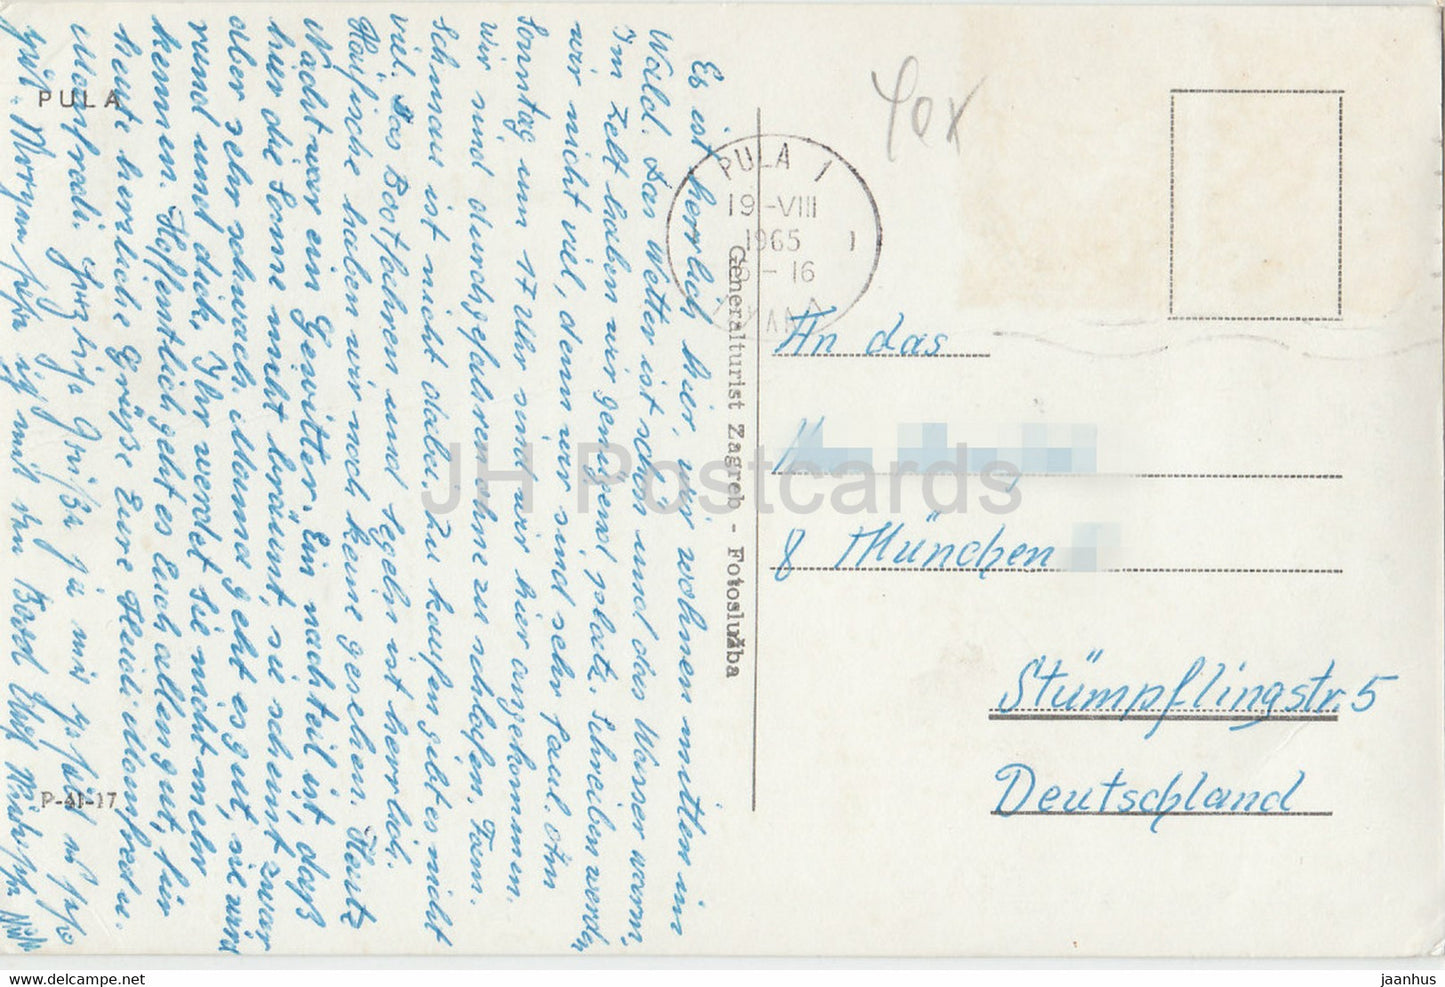 PULA
Es ist herrlich hier, wir wohnen mitten im
Wald. Das Wetter ist schön und das Wasser warm,
Im Zelt haben wir genügend platz. Schreiben werden
wir nicht viel, denn wir sind sehr faul. Am
Sonntag um 17 Uhr sind wir hier angekommen.
Wir sind durchgefahren ohne zu schlafen. Fam.
Schmau ist nicht dabei. Zu kaufen gibt es nicht
viel. Das Bootfahren und segeln ist herrlich.
Haifische haben wir noch keine gesehen. Heute
Nacht war ein Gewitter. Ein nachteil ist, daß
hier die Sonne nicht bräunt, sie scheint zwar
aber sehr schwach. Mama geht es gut, sie wird
rund und dick. Ihr werdet sie nicht mehr
kennen. Hoffentlich geht es Euch allen gut, für
heute herrliche Grüße Eure Heidi Manfred u.
P-41-17
PULA 1
19-VIII
1965
18-16
1
Generalturist Zagreb - Fotoslužba
An das
8 München
Stümpflingstr. 5
Deutschland
JH Postcards
www.hippostcard.com
jaanhus